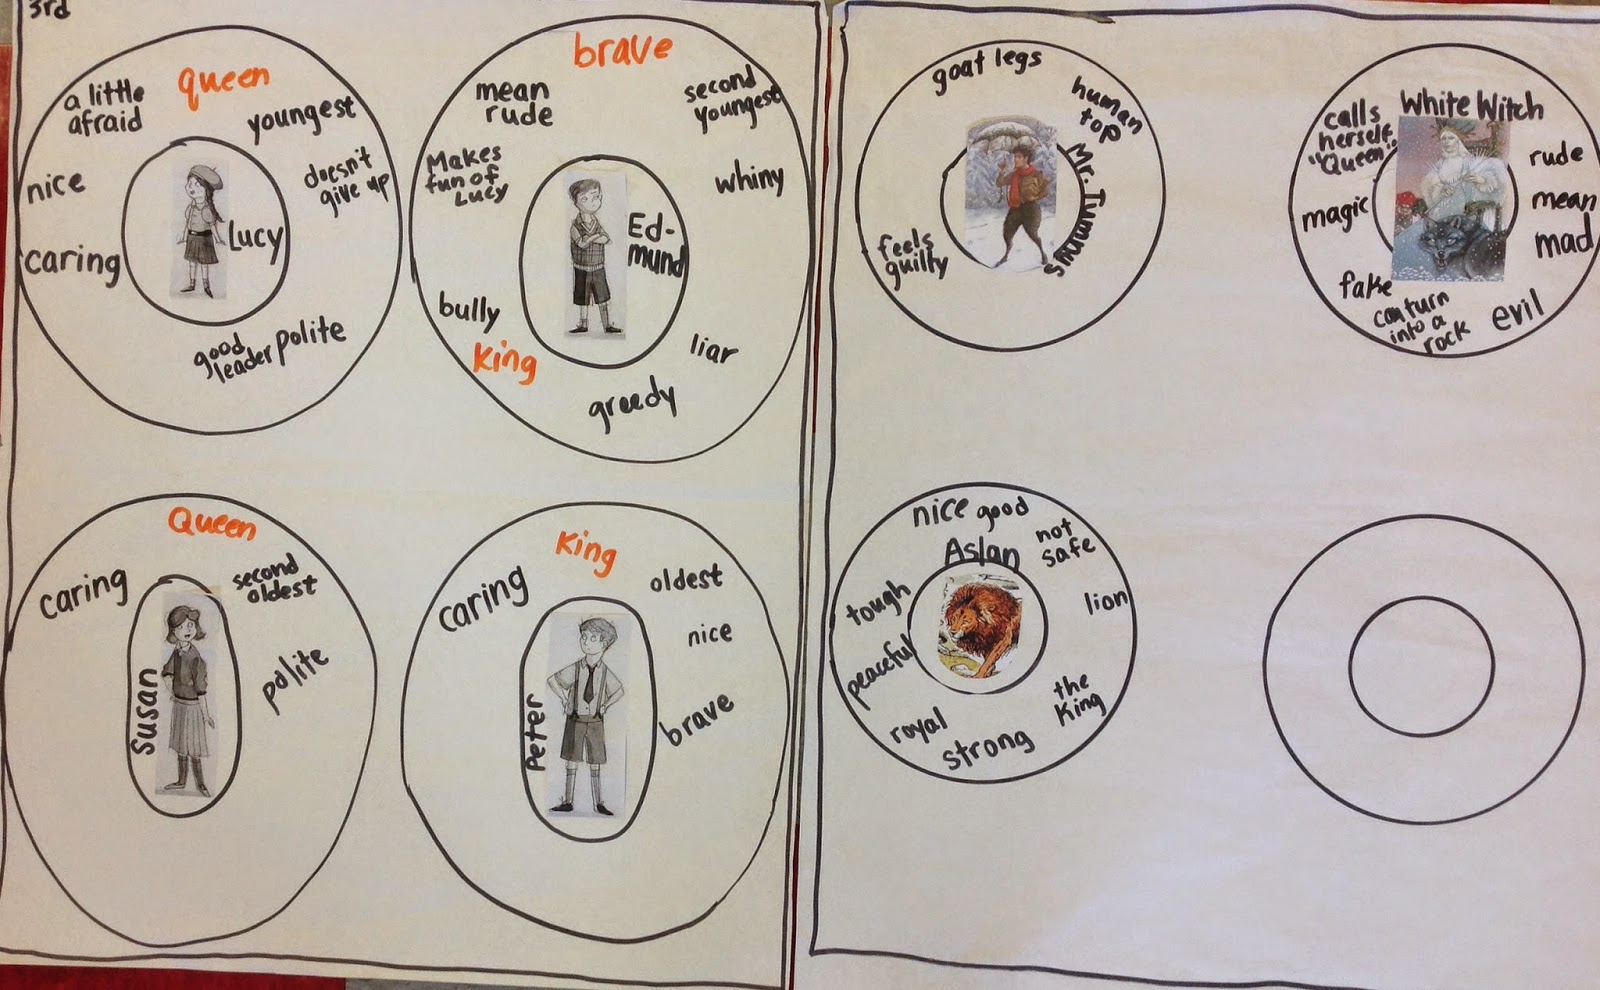 3rd
queen
a little
afraid
youngest
nice
doesn't
give up
caring
Lucy
good
leader
polite
brave
mean
rude
second
youngest
Makes
fun of
Lucy
whiny
Ed-
mund
bully
King
liar
greedy
Queen
caring
second
oldest
polite
Susan
King
caring
oldest
nice
brave
Peter
goat legs
human
top
Mr. Tumny's
feels
guilty
White Witch
calls
herself
"Queen"
rude
magic
mean
mad
fake
can turn
into a
rock
evil
nice good
Aslan
not
safe
tough
lion
peaceful
the
King
royal
strong